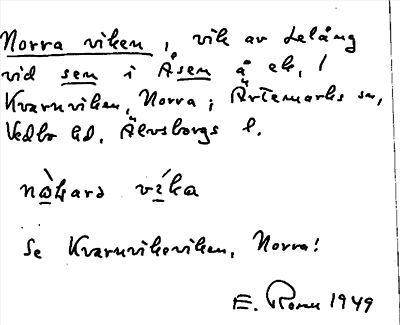 Norra viken, vik av Lelång
vid sem i Åsem å ek. /
Kvarnviken, Norra; Ärtemarks sn,
Vedbo hd, Älvsborgs l.
vìka
Se Kvarnvikeviken, Norra!
E. 1949